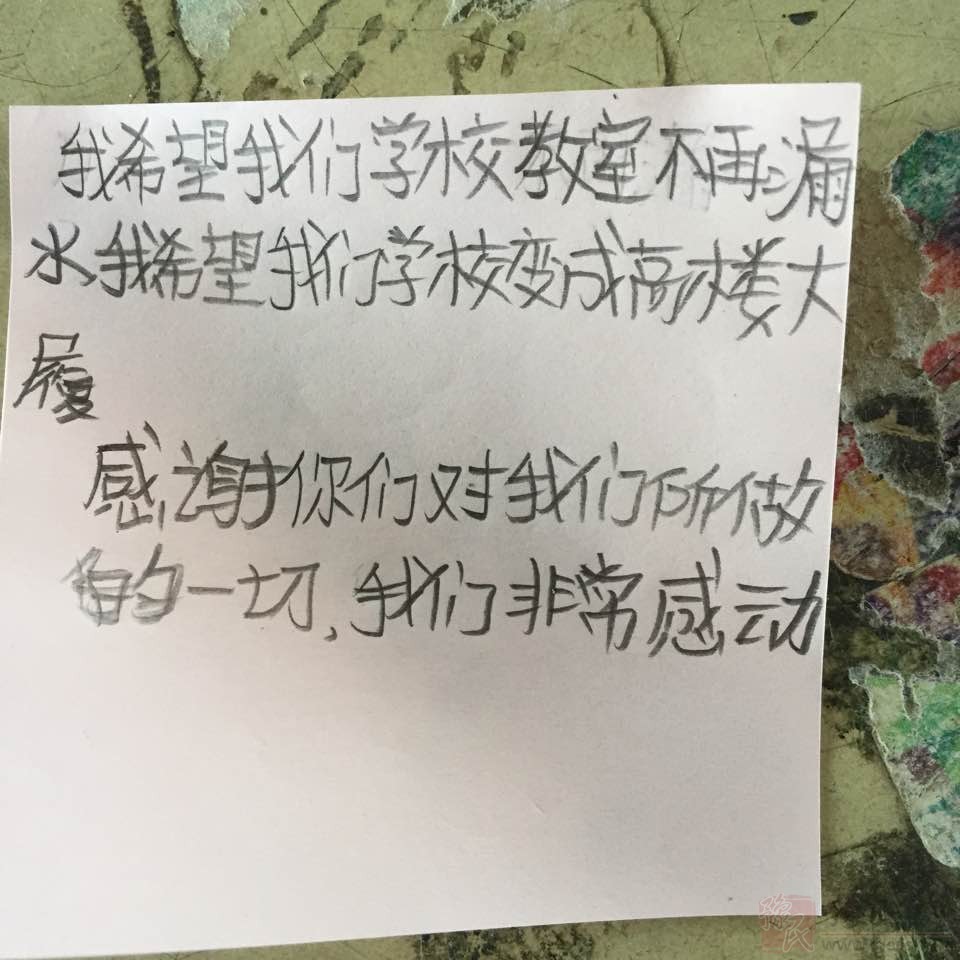 我希望我们学校教室不再漏
水,我希望我们学校变成高楼大
履
感谢你们对我们所做
的一切,我们非常感动